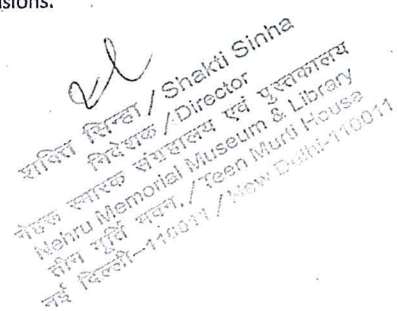 sions.
शक्ति सिन्हा / Shakti Sinha
निदेशक / Director
नेहरू स्मारक संग्रहालय एवं पुस्तकालय
Nehru Memorial Museum & Library
तीन मूर्ति भवन / Teen Murti House
नई दिल्ली-110011 / New Delhi-110011